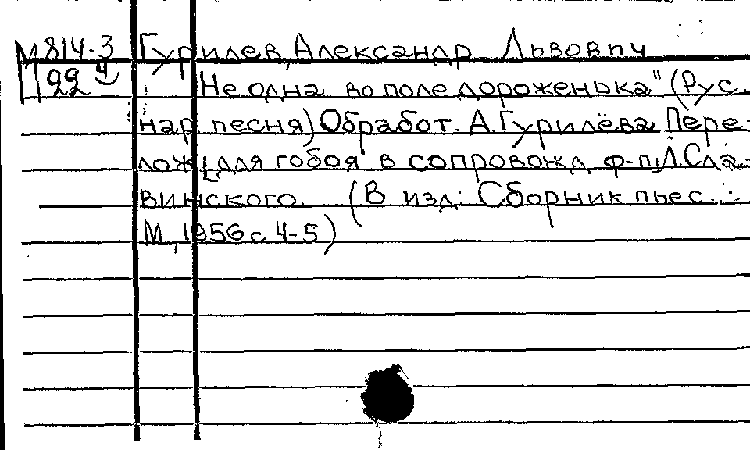 М814-3 Гурилев, Александр Львович
22 "Не одна во поле дороженька" (Рус.
нар. песня) Обработ. А. Гурилёва. Пере-
лож. для гобоя в сопровожд. ф-п. Л. Сла-
винского. (В изд.: Сборник пьес. :
М., 1956 с. 4-5)